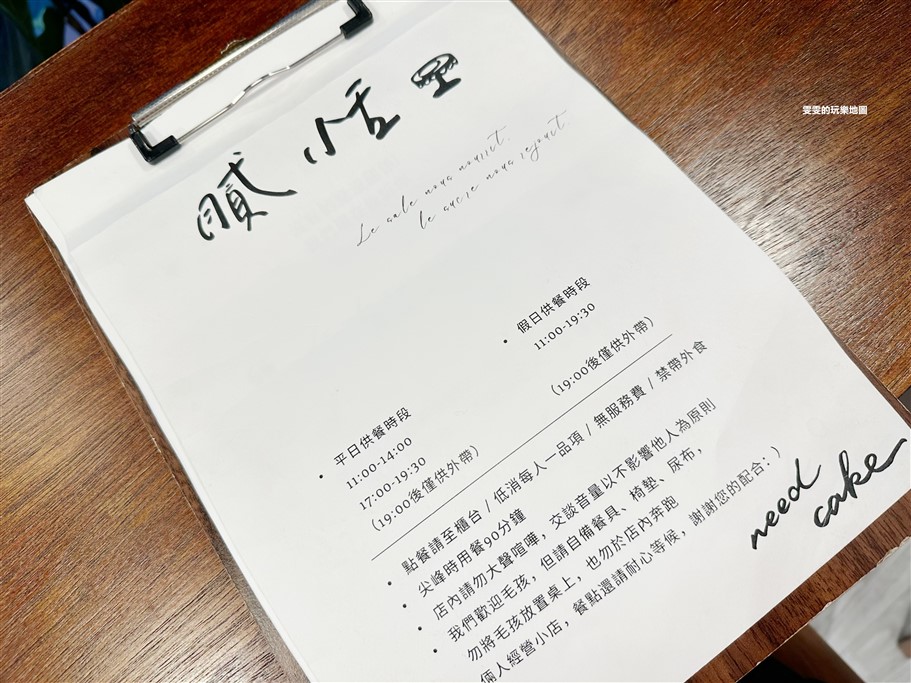 雯雯的玩樂地圖
Le sale nous nourrit,
le sucre nous rejouit.
平日供餐時段
11:00-14:00
17:00-19:30
(19:00後僅供外帶)
假日供餐時段
11:00-19:30
(19:00後僅供外帶)
點餐請至櫃台 / 低消每人一品項 / 無服務費 / 禁帶外食
尖峰時用餐90分鐘
店內請勿大聲喧嘩，交談音量以不影響他人為原則
我們歡迎毛孩，但請自備餐具、椅墊、尿布，
勿將毛孩放置桌上，也勿於店內奔跑
倆人經營小店，餐點還請耐心等候，謝謝您的配合：)
need
cake